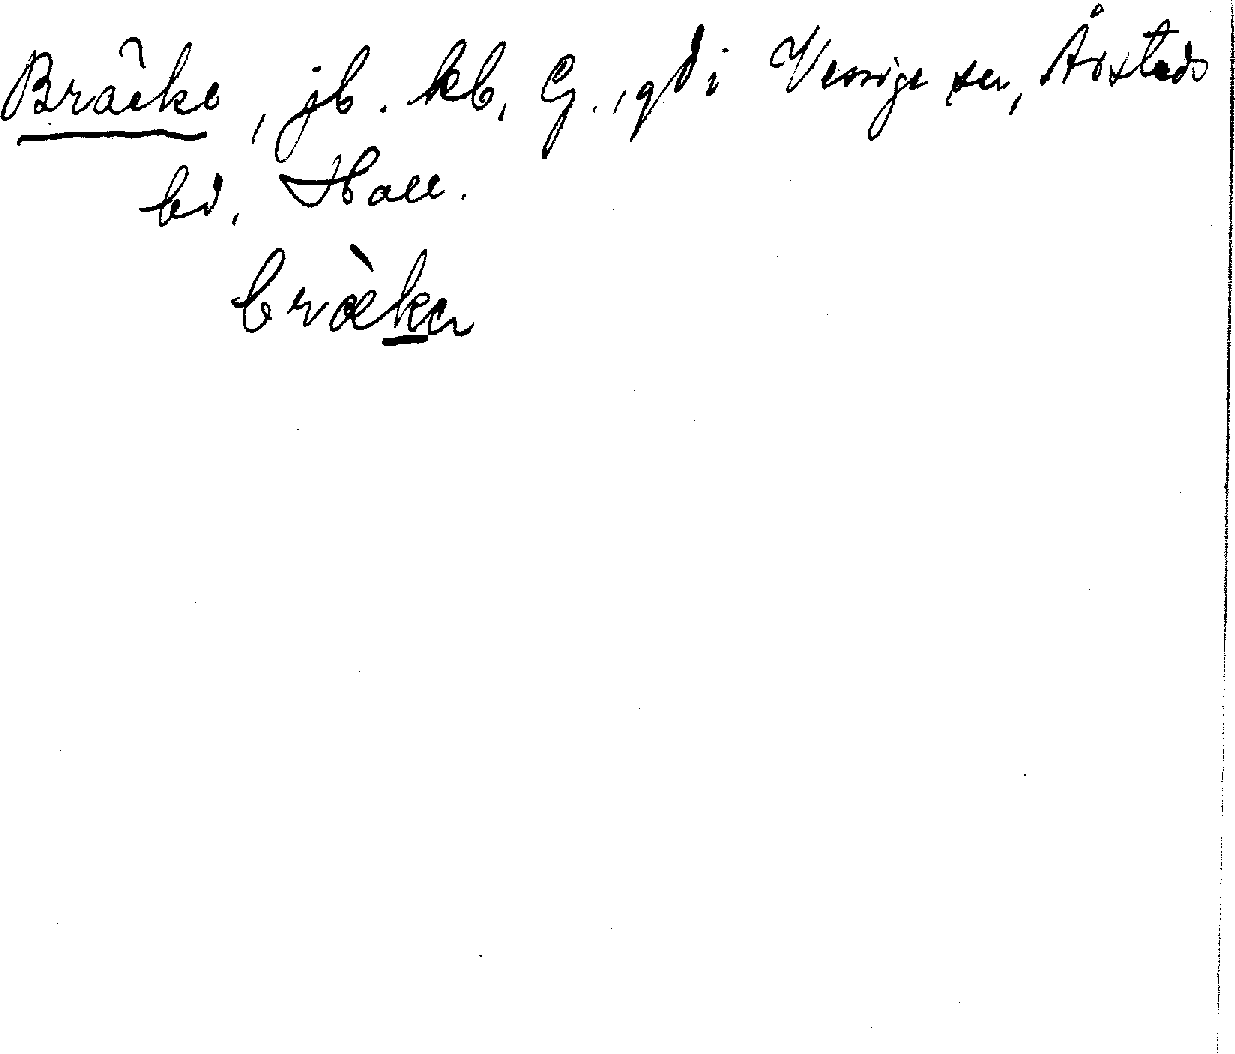 Bräcke, jb. kb, G., gd i Vessige sn, Årstads
hd, Hall.
bràkₑn